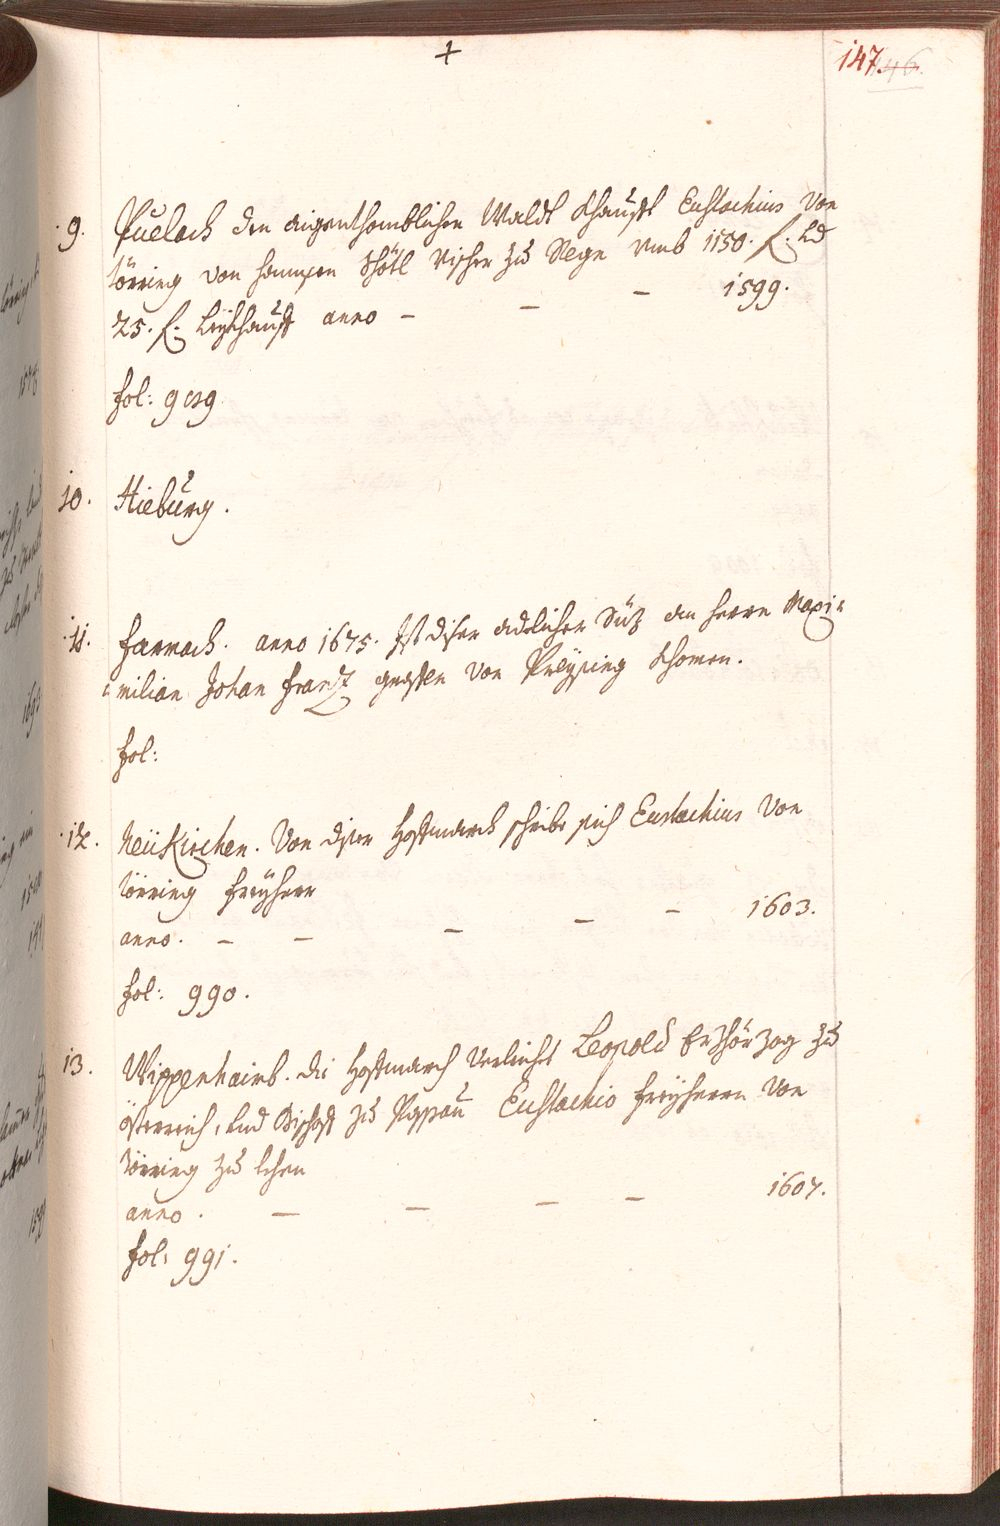 +
147 146.
9. Puelach den aigenthomblichen Waldt Khaufft Eustachius Von
Törring von hannsen Vischer zu Nege umb 1150. f. und
25. f. Leykhauff anno – – – 1599.
fol: 989
10. Hieburg.
11. Farmach. anno 1675. Ist diser adelicher Siz an herrn Maxi-
milian Johan Franz graffen Von Preysing Khomen.
fol:
12. Neükirchen. Von diser Hofmarch schribe sich Eustachius Von
Törring Freyherr
anno. – – – – – 1603.
fol: 990.
13. Wippenhaimb. die Hofmarch Verleicht Leopold Erzhörzog zu
österreich, und Bischoff zu Passau Eustachio Freyherrn Von
Törring zu lehen
anno. – – – – 1607.
fol: 991.